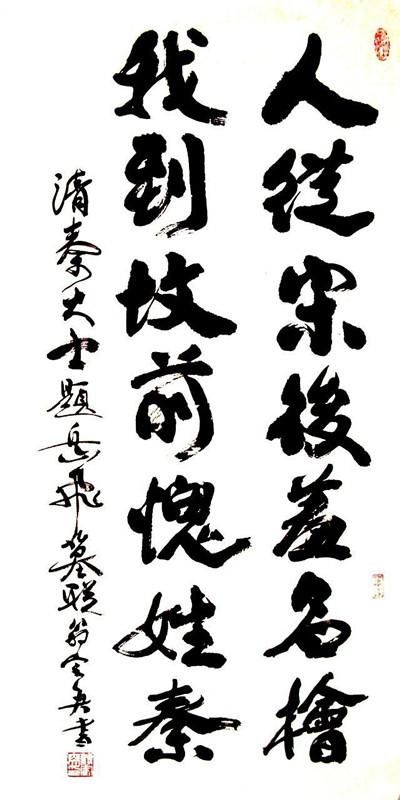 人從宋後羞名檜
我到坟前愧姓秦
清秦大士題岳飛墓联